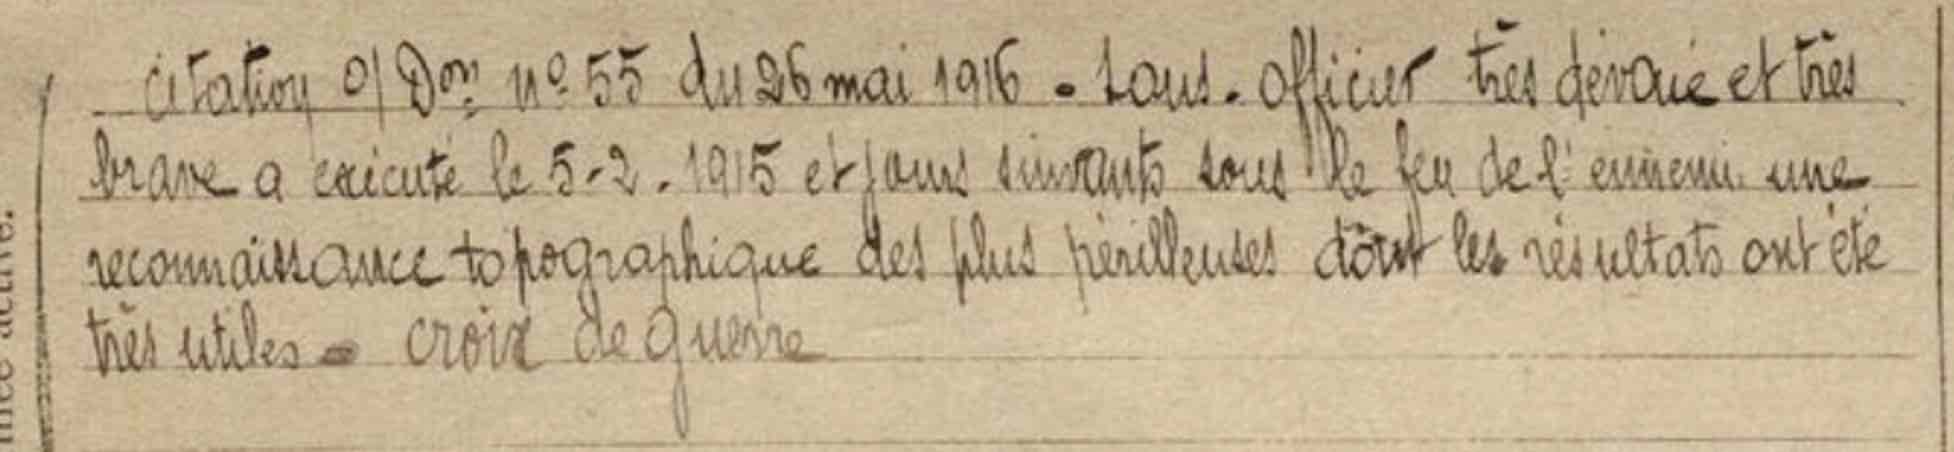 Citation O/ Don nº 55 du 26 mai 1916 - Sous-officier très dévoué et très
brave a exécuté le 5-2-1915 et jours suivants sous le feu de l'ennemi une
reconnaissance topographique des plus périlleuses dont les résultats ont été
très utiles - croix de guerre